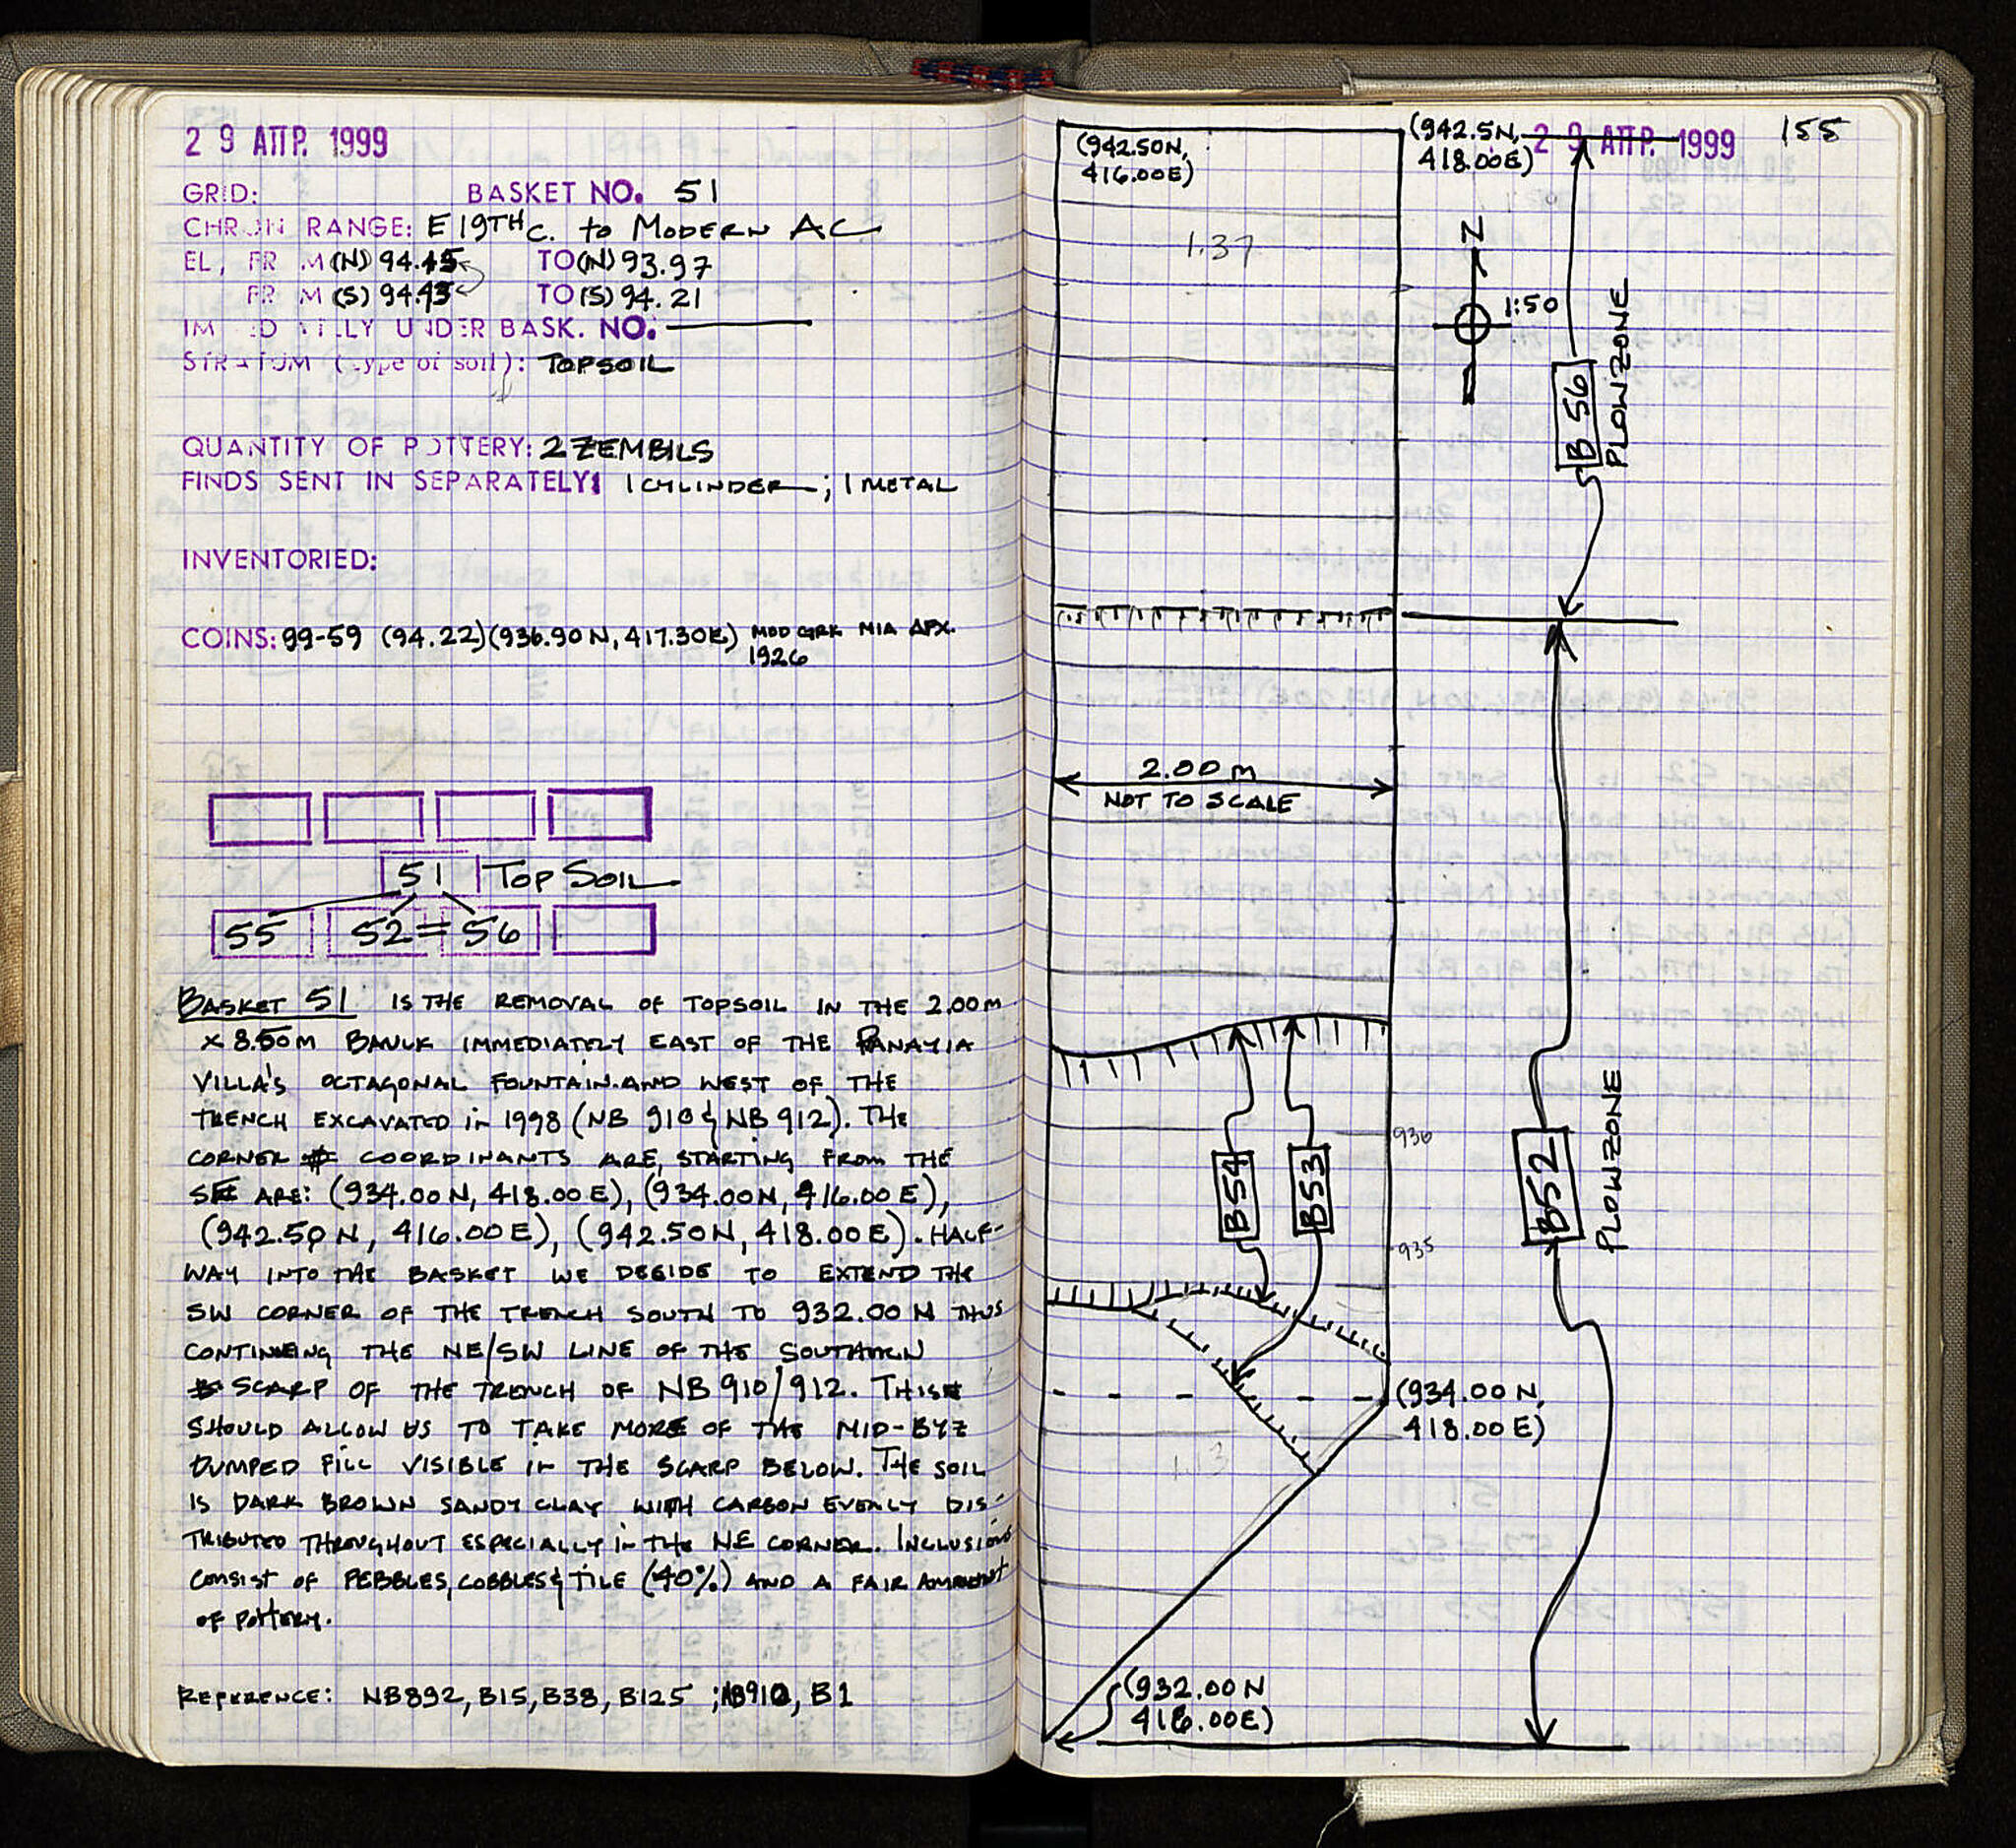 2 9 ΑΠΡ. 1999
GRID: BASKET NO. 51
CHRON RANGE: E 19TH C. to MODERN AC
EL, FR M (N) 94.45 TO (N) 93.97
FR M (S) 94.43 TO (S) 94.21
IM ED T LLY UNDER BASK. NO. ———
STRATUM (type of soil): TOPSOIL
QUANTITY OF POTTERY: 2 ZEMBILS
FINDS SENT IN SEPARATELY: 1 CYLINDER; 1 METAL
INVENTORIED:
COINS: 99-59 (94.22)(936.90 N, 417.30E) MOD GRK MIA ΔΡΧ.
1926
51 TOP SOIL
55 52 = 56
BASKET 51 IS THE REMOVAL OF TOPSOIL IN THE 2.00 M
X 8.50 M BAULK IMMEDIATELY EAST OF THE PANAYIA
VILLA'S OCTAGONAL FOUNTAIN AND WEST OF THE
TRENCH EXCAVATED in 1998 (NB 910 & NB 912). THE
CORNER COORDINANTS ARE, STARTING FROM THE
SE ARE: (934.00 N, 418.00 E), (934.00N, 416.00 E),
(942.50 N, 416.00 E), (942.50N, 418.00 E). HALF-
WAY INTO THE BASKET WE DECIDE TO EXTEND THE
SW CORNER OF THE TRENCH SOUTH TO 932.00 N THUS
CONTINUING THE NE/SW LINE OF THE SOUTHERN
SCARP OF THE TRENCH OF NB 910/912. THIS
SHOULD ALLOW US TO TAKE MORE OF THE MID-BYZ
DUMPED FILL VISIBLE IN THE SCARP BELOW. THE SOIL
IS DARK BROWN SANDY CLAY WITH CARBON EVENLY DIS-
TRIBUTED THROUGHOUT ESPECIALLY in THE NE CORNER. INCLUSIONS
CONSIST OF PEBBLES, COBBLES & TILE (40%) AND A FAIR AMOUNT
OF POTTERY.
REFERENCE: NB892, B15, B38, B125 ; NB910, B1
2 9 ΑΠΡ. 1999 155
(942.50N,
416.00E)
(942.5N,
418.00E)
1.37
N
1:50
B 56
PLOWZONE
2.00 m
NOT TO SCALE
936
B54
B53
B52
PLOWZONE
935
(934.00 N,
418.00 E)
(932.00 N
416.00E)